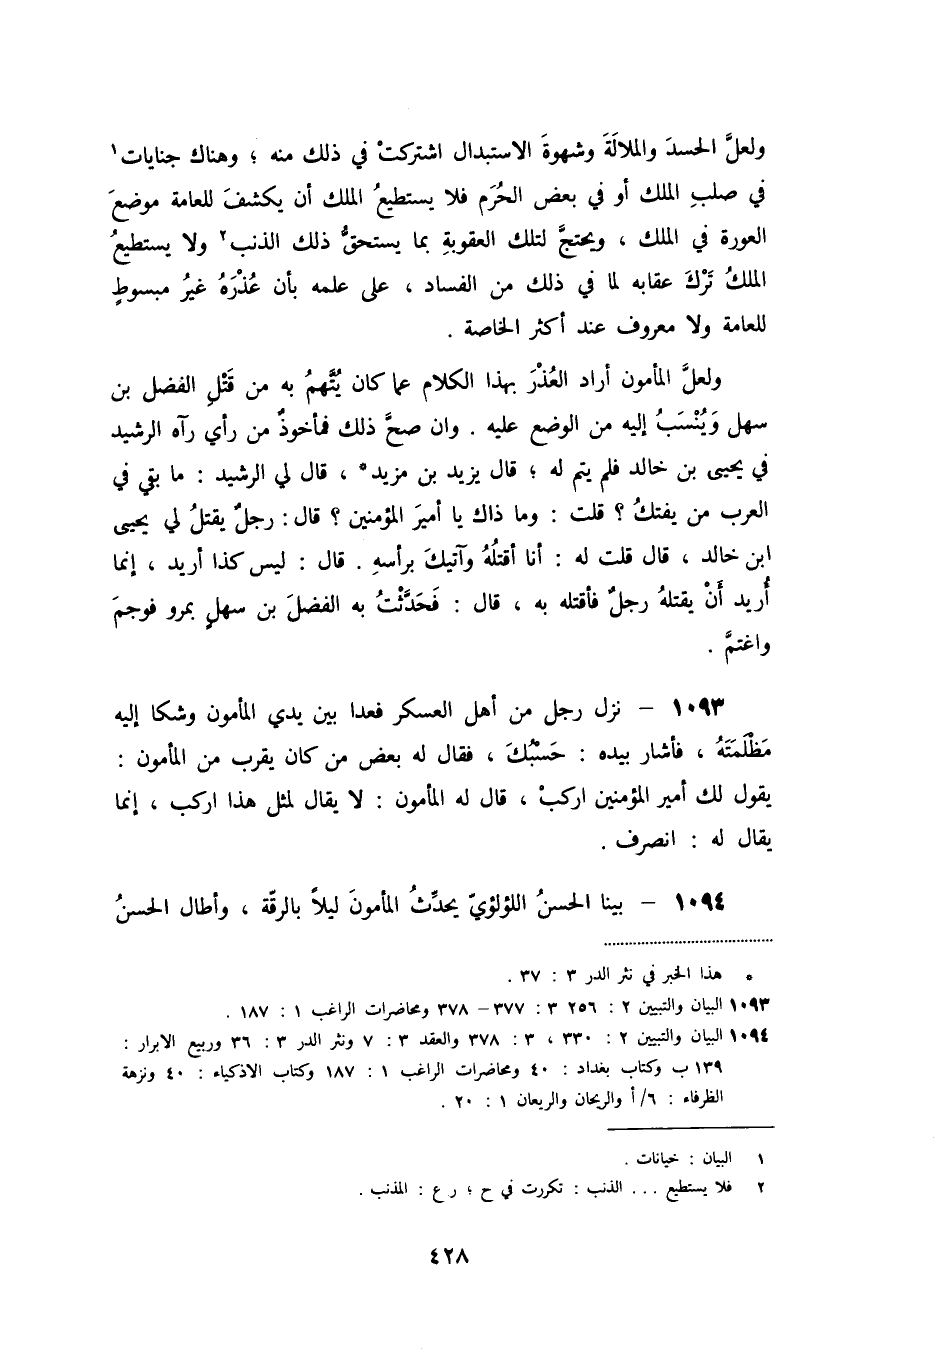 ولعلَّ الحسدَ والملالَةَ وشهوةَ الاستبدال اشتركتْ في ذلك منه ؛ وهناك جنايات١
في صلبِ الملك أو في بعض الحُرَم فلا يستطيعُ الملك أن يكشفَ للعامة موضعَ
العورة في الملك ، ويحتجَّ لتلك العقوبةِ بما يستحقُّ ذلك الذنب٢ ولا يستطيعُ
الملكُ تَرْكَ عقابه لما في ذلك من الفساد ، على علمه بأن عُذْرَهُ غيرُ مبسوطٍ
للعامة ولا معروف عند أكثر الخاصة .
ولعلَّ المأمون أراد العُذْرَ بهذا الكلام عما كان يُتَّهمُ به من قَتْلِ الفضل بن
سهل وَيُنْسَبُ إليه من الوضع عليه . وان صحَّ ذلك فمأخوذٌ من رأي رآه الرشيد
في يحيى بن خالد فلم يتم له ؛ قال يزيد بن مزيد* ، قال لي الرشيد : ما بقي في
العرب من يفتكُ ؟ قلت : وما ذاك يا أميرَ المؤمنين ؟ قال : رجلٌ يقتلُ لي يحيى
ابن خالد ، قال قلت له : أنا أقتلُهُ وآتيكَ برأسهِ . قال : ليس كذا أريد ، إنما
أُريد أَنْ يقتلهُ رجلٌ فأقتله به ، قال : فَحَدَّثْتُ به الفضلَ بن سهلٍ بمرو فوجمَ
واغتمَّ .
١٠٩٣ – نزل رجل من أهل العسكر فعدا بين يدي المأمون وشكا إليه
مَظْلَمَتَهُ ، فأشار بيده : حَسْبُكَ ، فقال له بعض من كان يقرب من المأمون :
يقول لك أمير المؤمنين اركبْ ، قال له المأمون : لا يقال لمثل هذا اركب ، إنما
يقال له : انصرف .
١٠٩٤ – بينا الحسنُ اللؤلؤيّ يحدِّثُ المأمونَ ليلاً بالرقّة ، وأطال الحسنُ
* هذا الخبر في نثر الدر ٣ : ٣٧ .
١٠٩٣ البيان والتبيين ٢ : ٢٥٦ ٣ : ٣٧٧ – ٣٧٨ ومحاضرات الراغب ١ : ١٨٧ .
١٠٩٤ البيان والتبيين ٢ : ٣٣٠ ، ٣ : ٣٧٨ والعقد ٣ : ٧ ونثر الدر ٣ : ٣٦ وربيع الابرار :
١٣٩ ب وكتاب بغداد : ٤٠ ومحاضرات الراغب ١ : ١٨٧ وكتاب الاذكياء : ٤٠ ونزهة
الظرفاء : ٦/أ والريحان والريعان ١ : ٢٠ .
١ البيان : خيانات .
٢ فلا يستطيع ... الذنب : تكررت في ح ؛ ر ع : المذنب .
٤٢٨